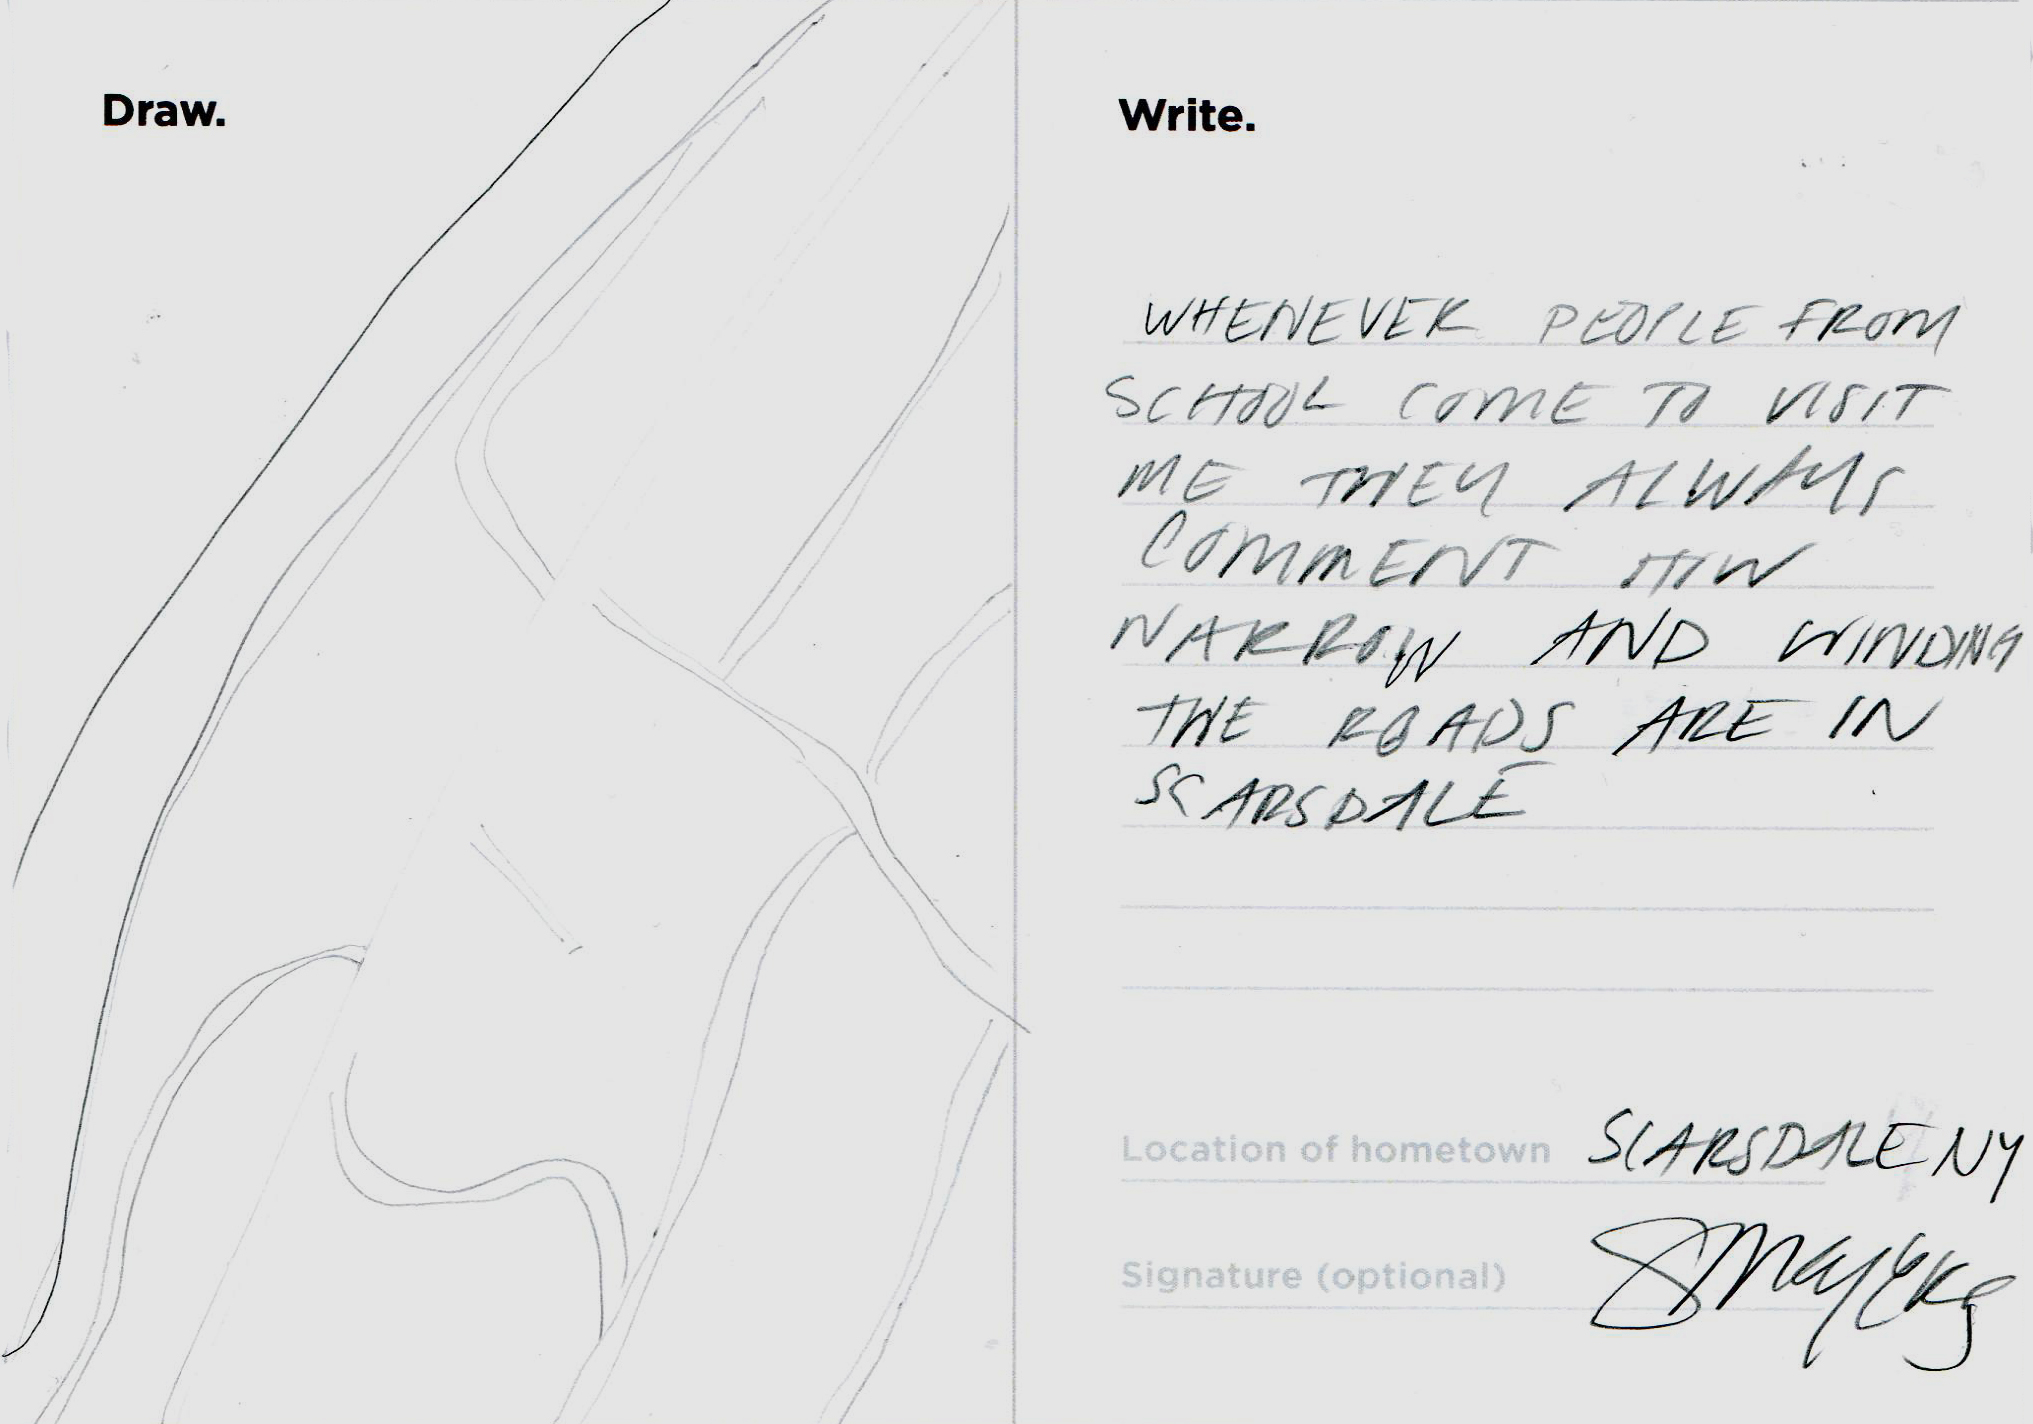 Draw.
Write.
WHENEVER PEOPLE FROM
SCHOOL COME TO VISIT
ME THEY ALWAYS
COMMENT HOW
NARROW AND WINDING
THE ROADS ARE IN
SCARSDALE
Location of hometown SCARSDALE NY
Signature (optional)